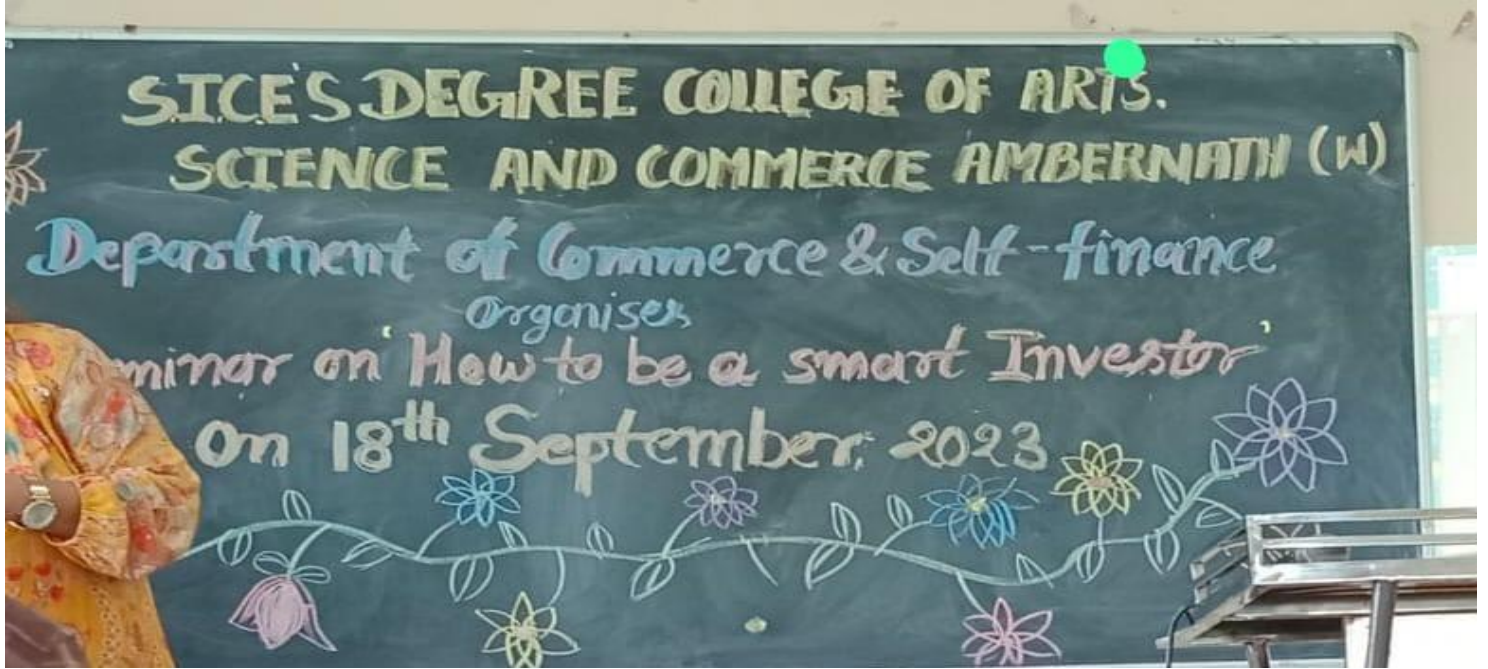 S.I.C.E'S DEGREE COLLEGE OF ARTS.
SCIENCE AND COMMERCE AMBERNATH (W)
Department of Commerce & Self-finance
organises
minar on 'How to be a smart Investor'
on 18th September, 2023